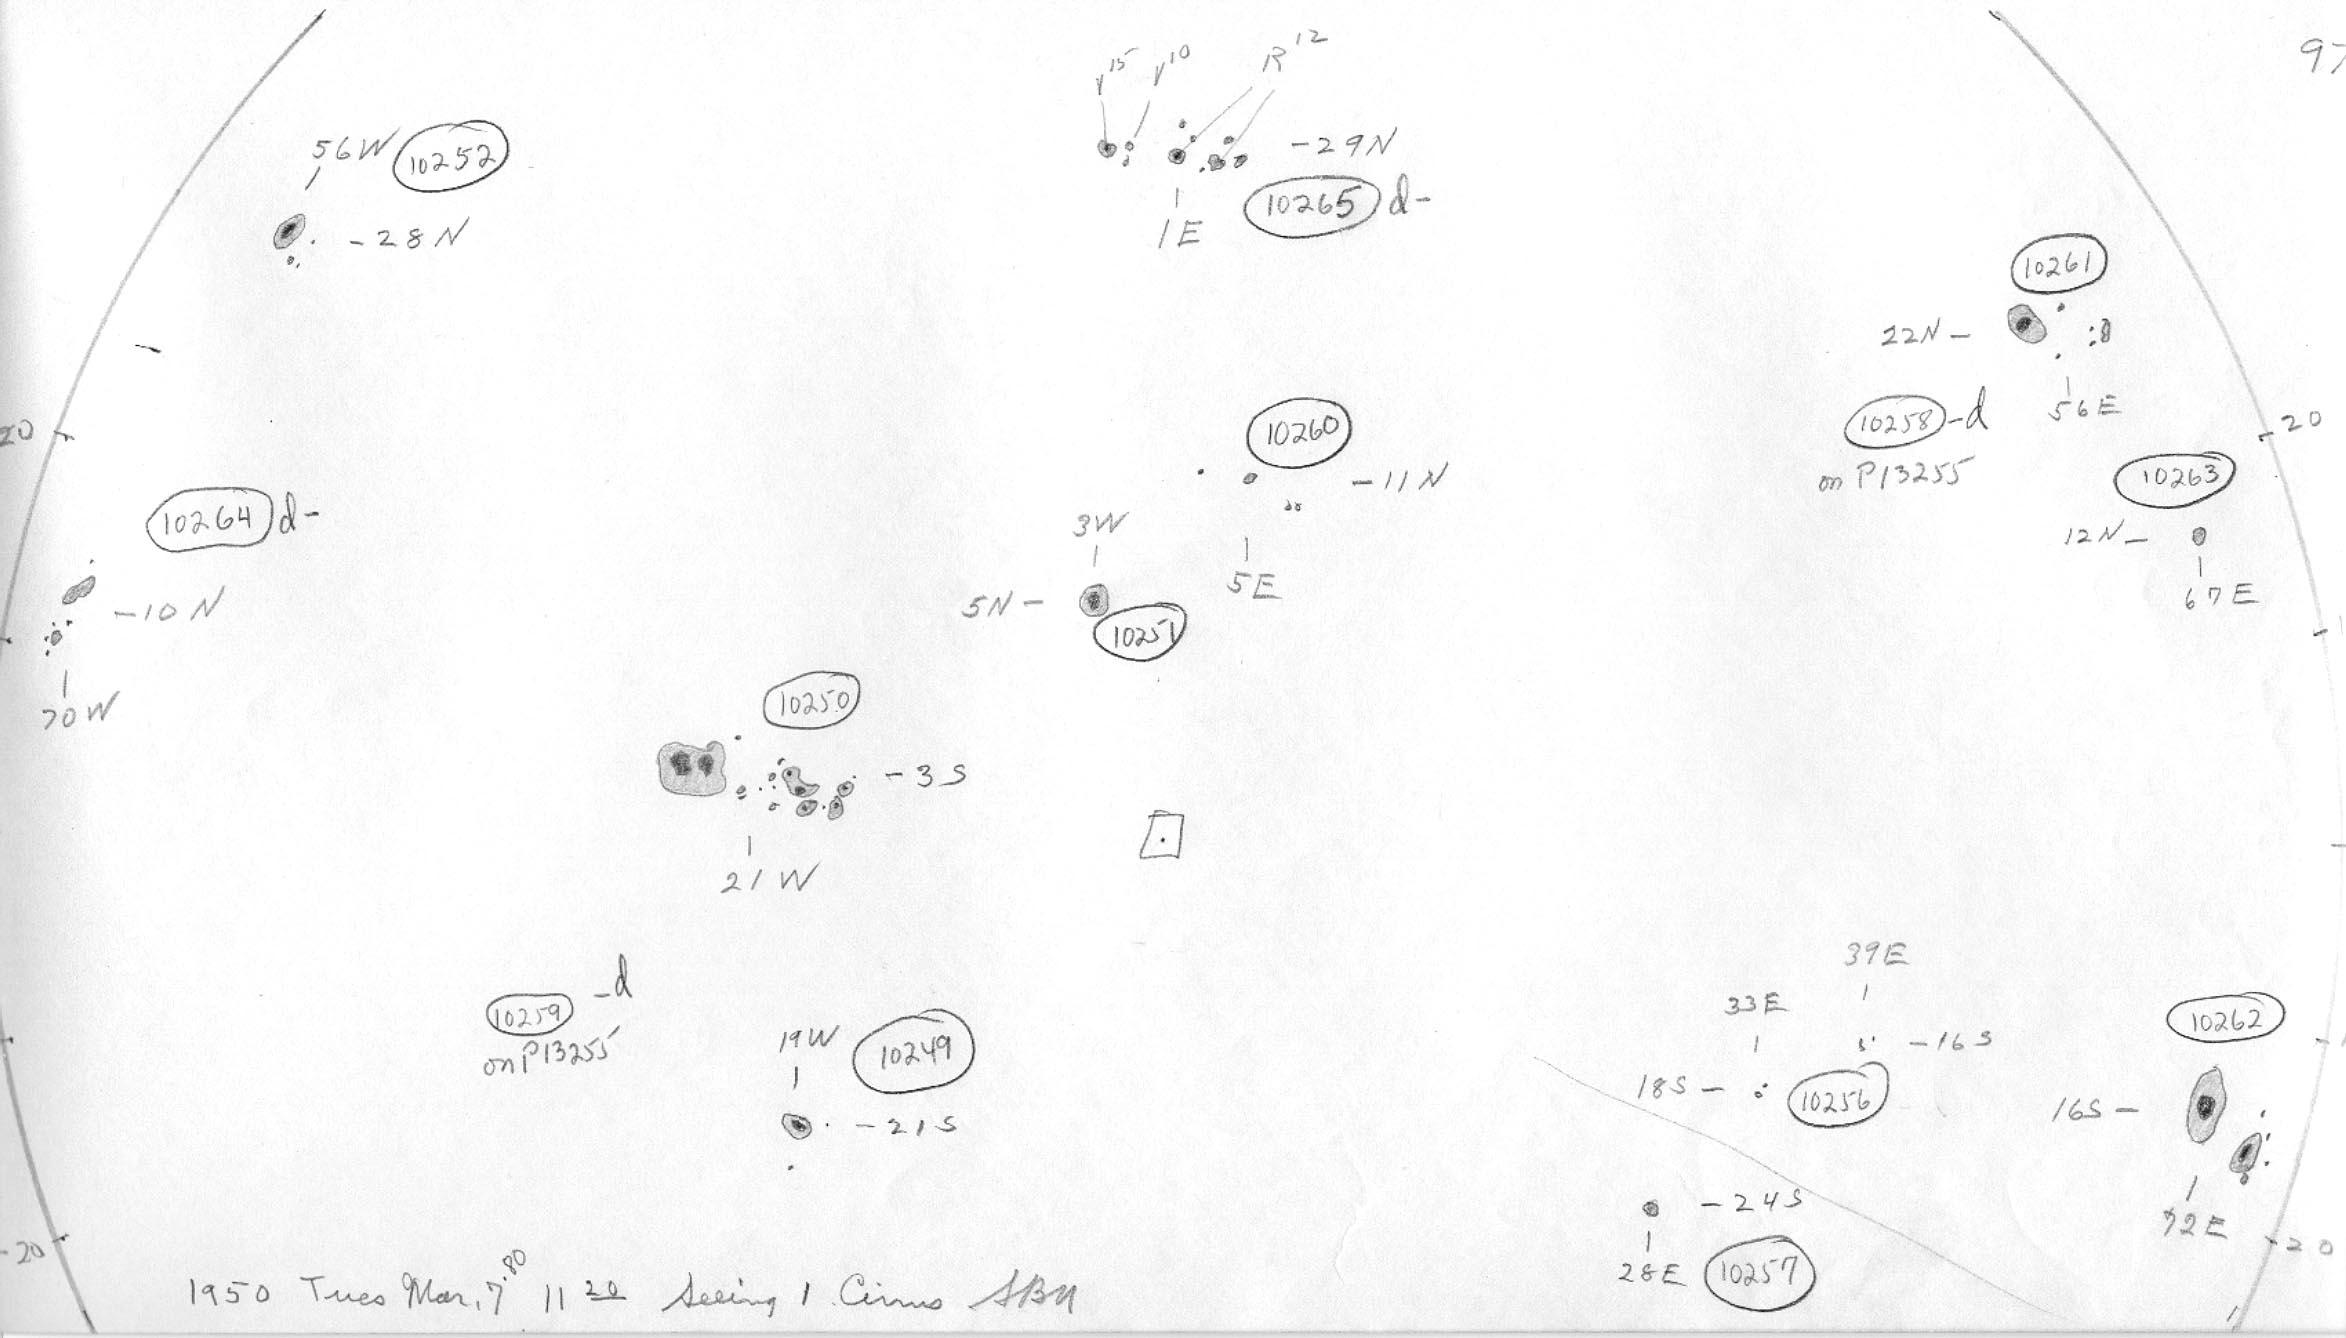 97
V15 V10 R12
56W 10252
-28N
-29N
10265 d-
1E
10261
22N -
56E
10258 -d
on P13255
20
-20
10260
-11N
5E
10263
12N -
67E
10264 d-
-10N
70W
3W
5N -
10251
10250
-3S
21W
10259 -d
on P13255
19W 10249
-21S
39E
33E
-16S
18S -
10256
10262
16S -
72E
-24S
28E 10257
-20
-20
1950 Tues Mar. 7.80 11 20 Seeing 1 Cirrus SBN